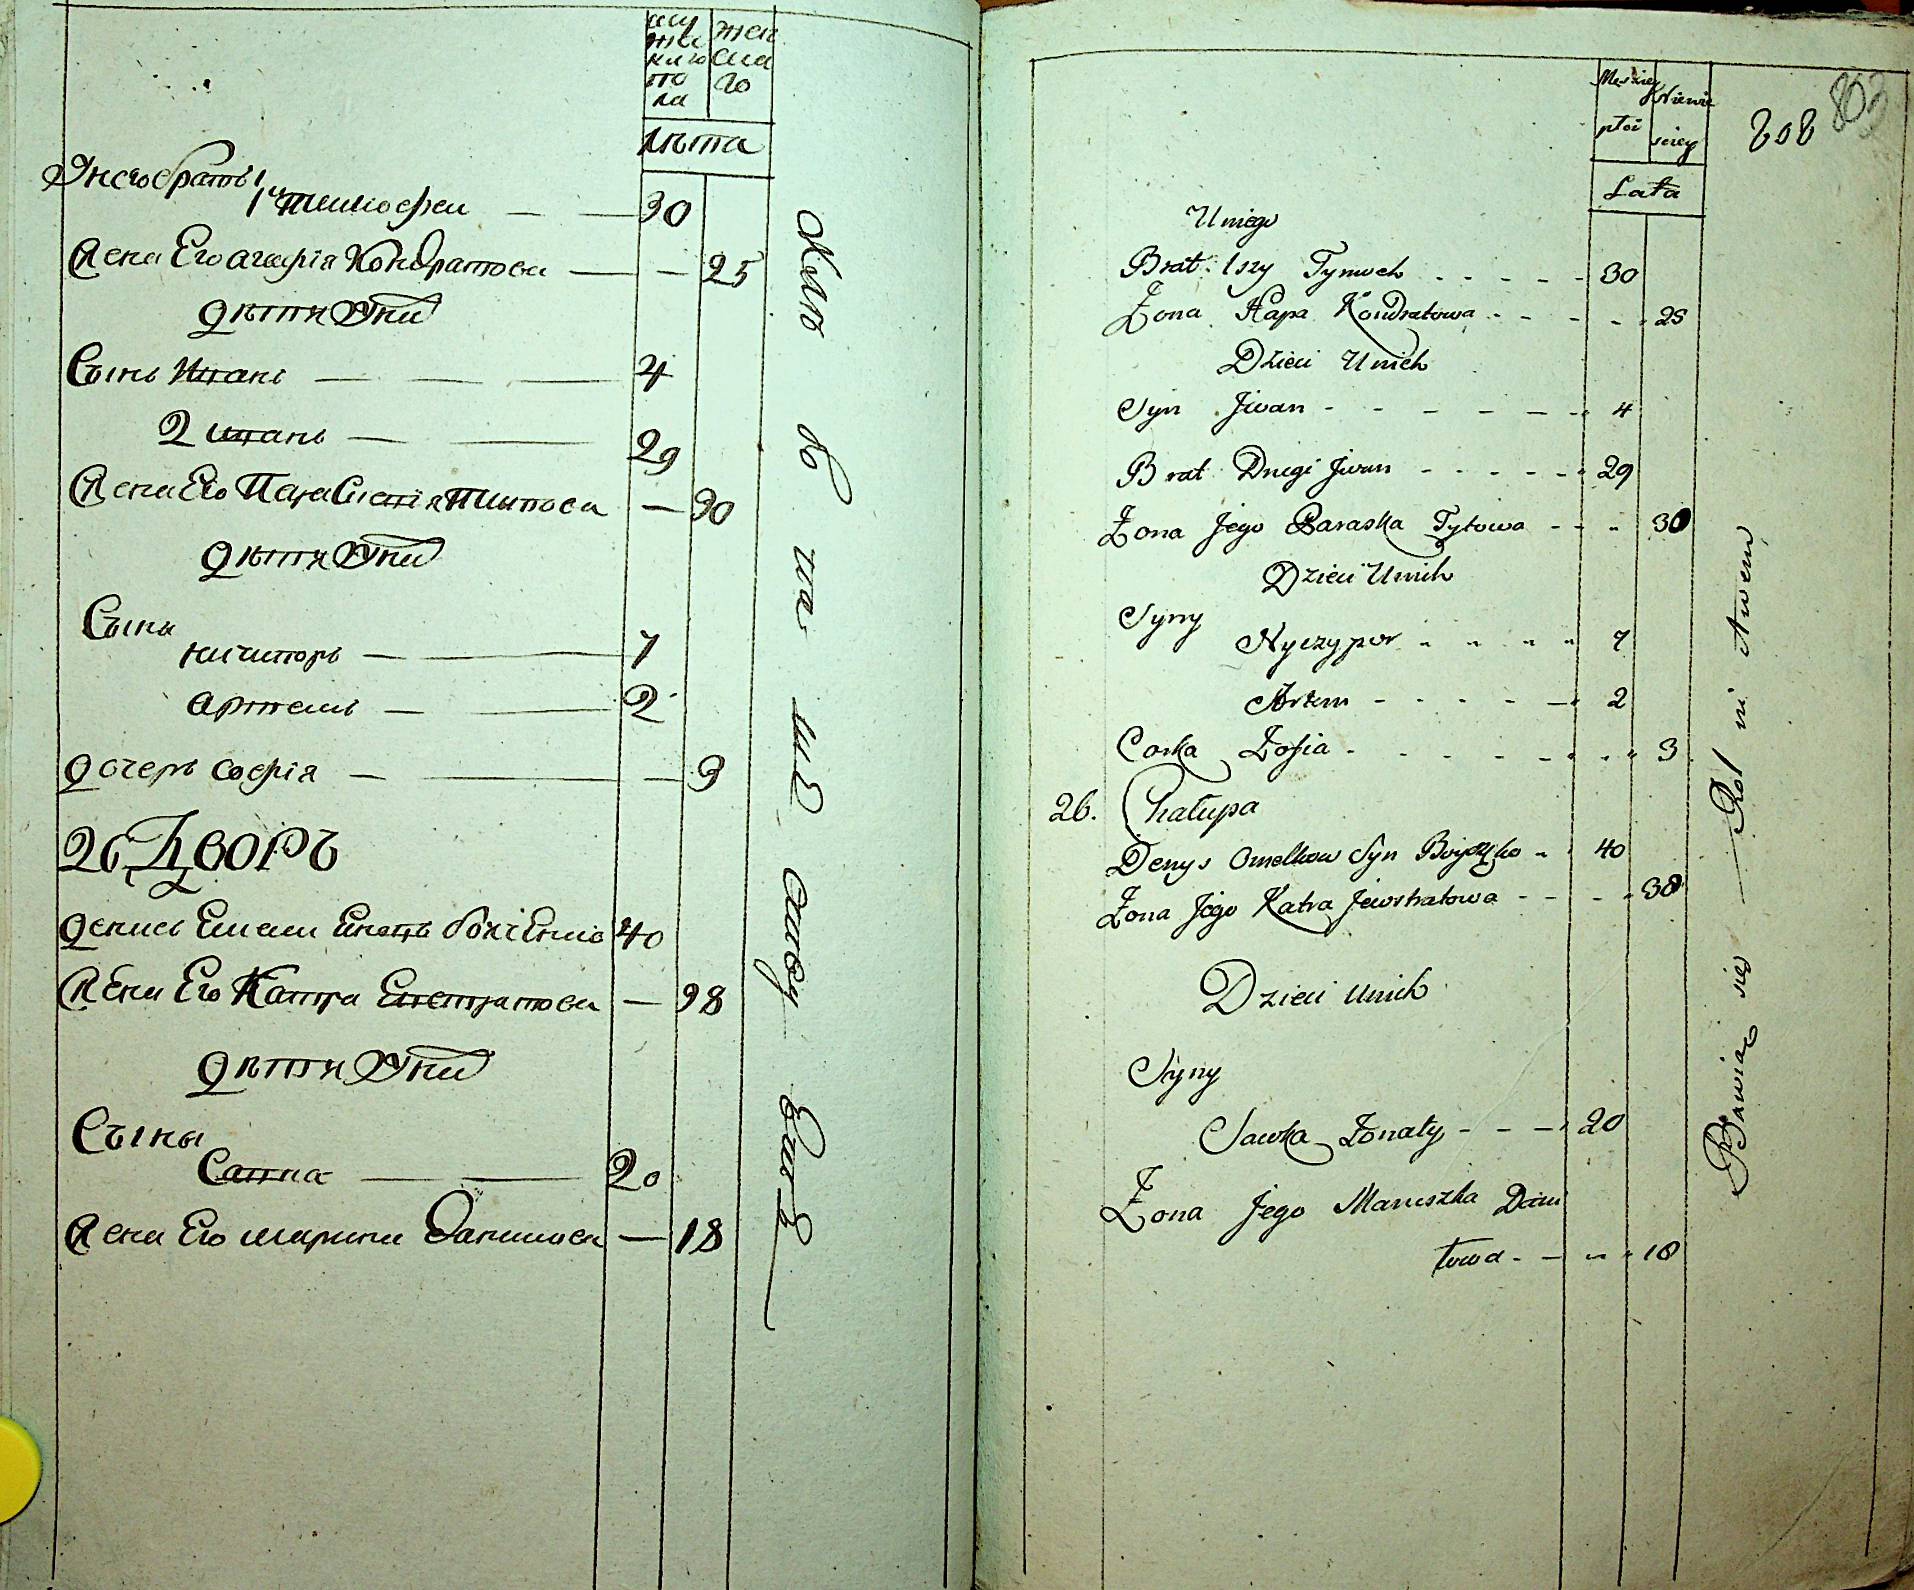 му
жес
каго
по
ла
жен
ска
го
лѣта
Унего братъ 1
1й Тимофеи 30
Жена Его агафія Кондратова 25
Дѣти У них
Сынъ Иванъ 4
2 иванъ 29
Жена Его Параскевія Титова 30
Дѣти У них
Сыны
ничипоръ 7
артемъ 2
Дочеръ софія 3
26 Дворъ
Денисъ Емели
Жена Его Катра Евстратова 38
Дѣти У них
Сыны
Савка 20
Жена Его марина Данилова 18
Męzkiey
płci
Niewie
sciey
Lata
808
803
U niego
Brat 1szy Tymoch 30
Żona Hapa Kondratowa 25
Dzieci U nich
Syn Jwan 4
Brat Drugi Jwan 29
Żona Jego Paraska Tytowa 30
Dzieci U nich
Syny
Nyczypor 7
Artem 2
Corka Zofia 3
26. Chałupa
Denys Omelkow Syn 40
Żona Jego Katra Jewstratowa 38
Dzieci U nich
Syny
Sawka Żonaty 20
Żona Jego Maruszka Dani
łowa 18
Bawiąc się Rol ni ctwem